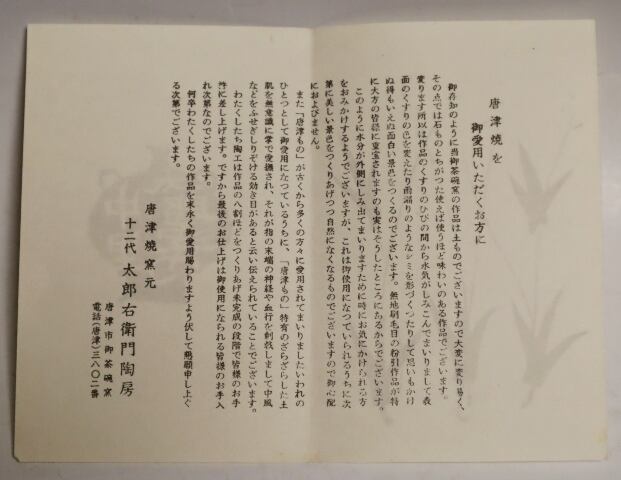 唐津焼を
御愛用いただくお方に
御存知のように当御茶碗窯の作品は土ものでございますので大変に変り易く、
その点では石ものとちがつた使えば使うほど味わいのある作品でございます。
変ります所以は作品のくすりのひびの間から水気がしみこんでまいりまして表
面のくすりの色を変えたり雨漏りのようなシミを形づくつたりして思いもかけ
ぬ得もいえぬ面白い景色をつくるのでございます。無地刷毛目の粉引作品が特
に大方の皆様に重宝されますのも実はそうしたところにあるからでございます。
このように水分が外側にしみ出てまいりますために時にお気にかけられる方
をおみかけするようでございますが、これは御使用になつていられるうちに次
第に美しい景色をつくりあげつつ自然になくなるものでございますので御心配
におよびません。
また「唐津もの」が古くから多くの方々に愛用されてまいりましたいわれの
ひとつとして御愛用になつているうちに、「唐津もの」特有のざらざらした土
肌を無意識に掌で愛撫され、それが指の末端の神経や血行を刺戟しまして中風
などをふせぎしりぞける効き目があると云い伝えられていることでございます。
わたくしたち陶工は作品の八割ほどをつくりあげ未完成の段階で皆様のお手
許に差し上げます。ですから最後のお仕上げは御使用になられる皆様のお手入
れ次第なのでございます。
何卒わたくしたちの作品を末永く御愛用賜わりますよう伏して懇願申し上ぐ
る次第でございます。
唐津焼窯元
十二代 太郎右衛門陶房
唐津市御茶碗窯
電話(唐津)三八〇二番